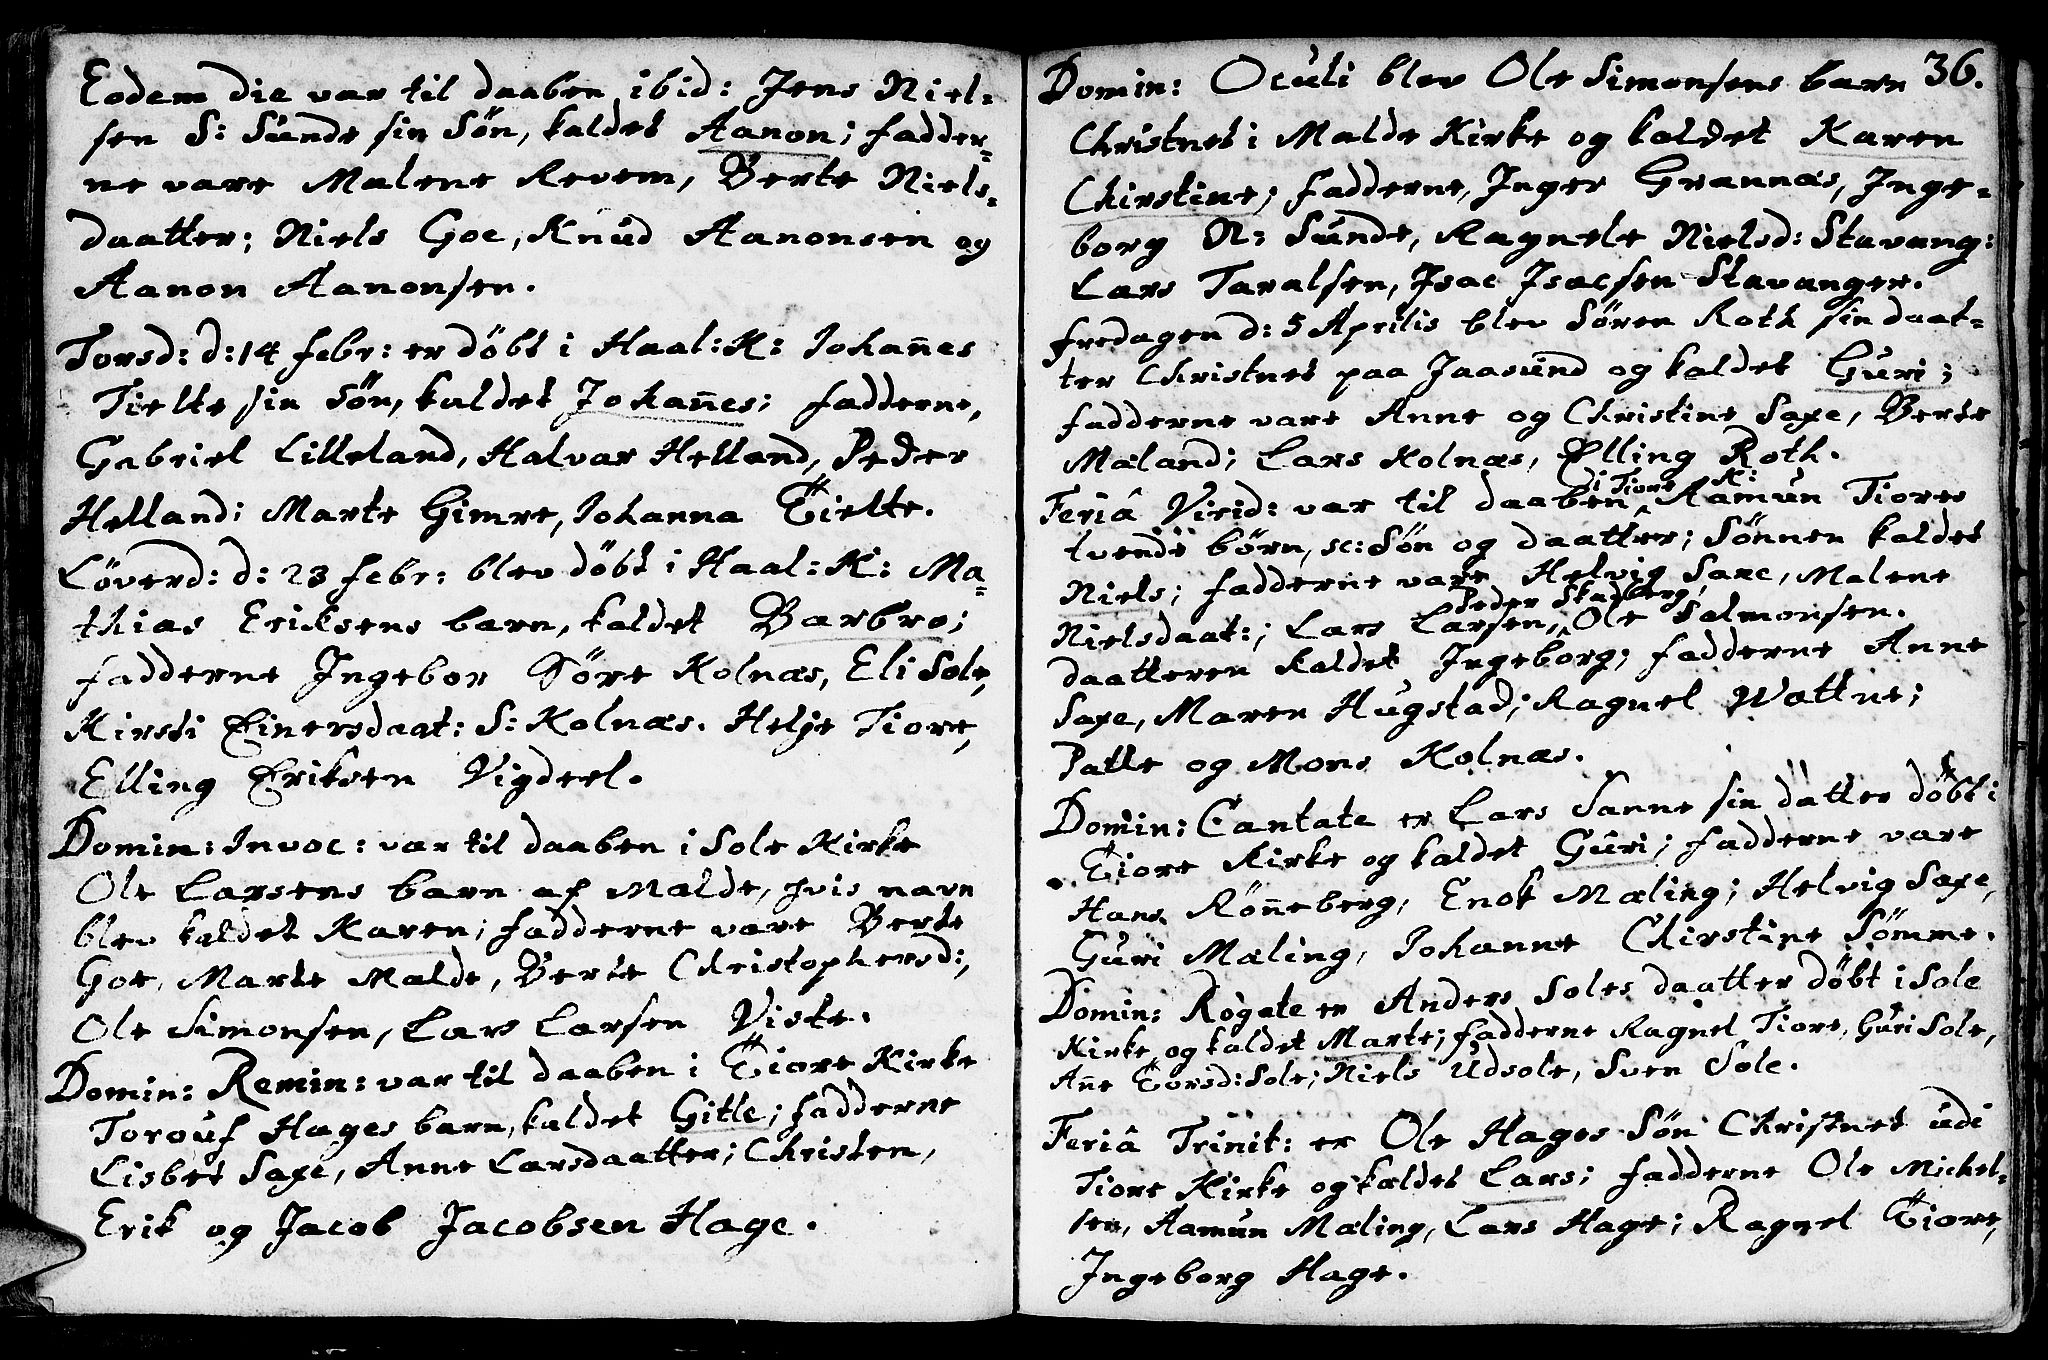 Eodem die var til daaben ibid: Jens Niel-
sen S: Sunde sin Søn, kaldet Aanon; fadder-
ne vare Malene Revem, Berte Niels-
daatter; Niels Goe, Knud Aanonsen og
Aanon Aanonsen.
Torsd: d: 14 febr: er döbt i Haal: K: Johannes
Tielte sin Søn, kaldet Johannes; fadderne,
Gabriel Lilleland, Halvar Helland, Peder
Helland; Marte Gimre, Johanna Tielte.
Løverd: d: 23 febr: blev döbt i Haal: K: Ma-
thias Eriksens barn, kaldet Barbro;
fadderne Ingebor Søre Kolnæs, Eli Sole,
Kirsti Einersdaat: S: Kolnæs. Helje Tiore,
Elling Eriksen Vigdeel.
Domin: Invoc: var til daaben i Sole Kirke
Ole Larsens barn af Malde, hvis navn
blev kaldet Karen; fadderne vare Berte
Goe, Marte Malde, Berte Christophersd:,
Ole Simonsen, Lars Larsen Viste.
Domin: Remin: var til daaben i Tiore Kirke
Torouf Hages barn, kaldet Gitle; fadderne
Lisbet Saxe, Anne Larsdaatter; Christen,
Erik og Jacob Jacobsen Hage.
36.
Domin: Oculi blev Ole Simonsens barn
Christnet i Malde Kirke og kaldet Karen
Chirstine; fadderne, Inger Grannæs, Inge-
borg N: Sunde, Ragnele Nielsd: Stavang:
Lars Taralsen, Isac Isacsen Stavanger.
fredagen d: 5 Aprilis blev Søren Roth sin daat-
ter Christnet paa Jaasund og kaldet Guri;
fadderne vare Anne og Christine Saxe, Berte
Mæland; Lars Kolnæs, Elling Roth.
i Tiore K:
Feriâ Virid: var til daaben, Aamun Tiores
tvende börn, sc: Søn og daatter; Sønnen kaldet
Niels; fadderne vare Helvig Saxe, Malene
Peder Skadberg,
Nielsdaat:; Lars Larsen, Ole Salmonsen.
daatteren kaldet Ingeborg; fadderne Anne
Saxe, Maren Hugstad; Ragnel Wattne;
Palle og Mons Kolnæs.
Domin: Cantate er Lars Sanne sin datter döbt i
Tiore Kirke og kaldet Guri; fadderne vare
Hans Rønneberg, Enok Mæling; Helvig Saxe,
Guri Mæling, Johanne Chirstine Sömme.
Domin: Rogate er Anders Soles daatter döbt i Sole
Kirke og kaldet Marte; fadderne Ragnel Tiore, Guri Sole,
Anne Torsd: Sole; Niels Udsole, Sven Sole.
Feriâ Trinit: er Ole Hages Søn Christnet udi
Tiore Kirke og kaldet Lars; fadderne Ole Michel-
sen, Aamun Mæling, Lars Hage; Ragnel Tiore,
Ingeborg Hage.